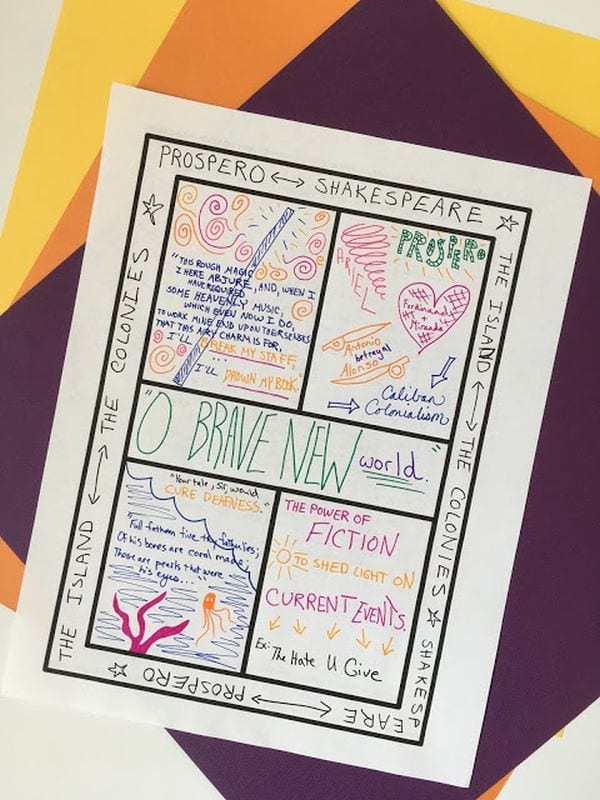 PROSPERO ↔ SHAKESPEARE
THE ISLAND ↔ THE COLONIES
SHAKESPEARE ↔ PROSPERO
THE ISLAND ↔ THE COLONIES
"THIS ROUGH MAGIC
I HERE ABJURE, AND, WHEN I
HAVE REQUIRED
SOME HEAVENLY MUSIC,
WHICH EVEN NOW I DO,
TO WORK MINE END UPON THEIR SENSES
THAT THIS AIRY CHARM IS FOR,
I'LL BREAK MY STAFF,
...
I'LL DROWN MY BOOK."
ARIEL
PROSPERO
Ferdinand
+
Miranda
Antonio
betrayal
Alonso
Caliban
Colonialism
"O BRAVE NEW world."
"Your tale, sir, would
CURE DEAFNESS."
"Full fathom five thy father lies;
Of his bones are coral made;
Those are pearls that were
his eyes..."
THE POWER OF
FICTION
TO SHED LIGHT ON
CURRENT EVENTS.
Ex: The Hate U Give